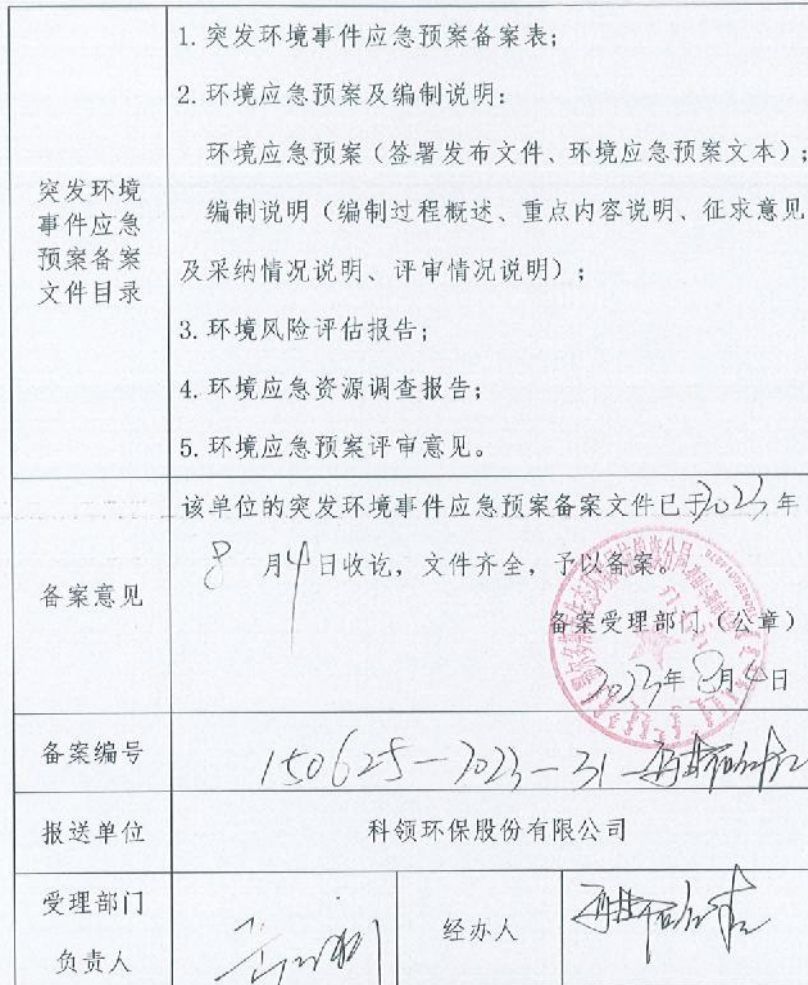 突发环境
事件应急
预案备案
文件目录
1.突发环境事件应急预案备案表;
2.环境应急预案及编制说明:
环境应急预案(签署发布文件、环境应急预案文本);
编制说明(编制过程概述、重点内容说明、征求意见
及采纳情况说明、评审情况说明);
3.环境风险评估报告;
4.环境应急资源调查报告;
5.环境应急预案评审意见。
备案意见
该单位的突发环境事件应急预案备案文件已于2023年
8月4日收讫,文件齐全,予以备案。
备案受理部门(公章)
2023年8月4日
备案编号
150625-2023-31-
报送单位
科领环保股份有限公司
受理部门
负责人
经办人